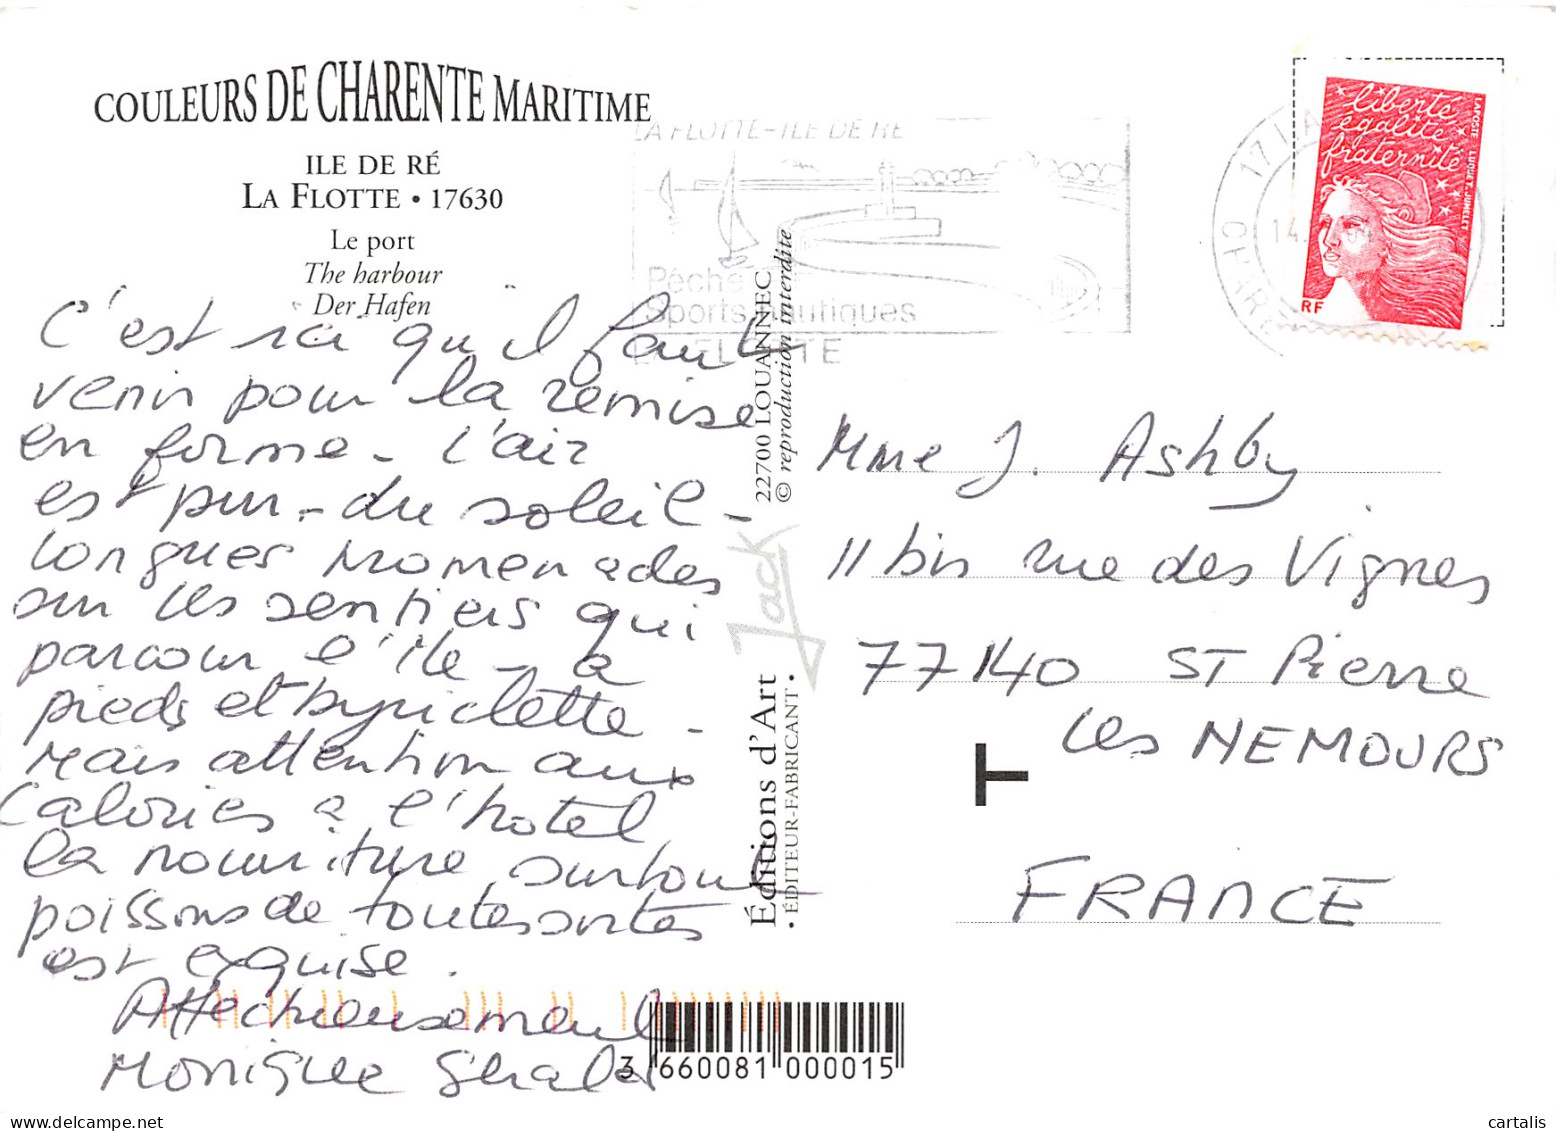 COULEURS DE CHARENTE MARITIME
ILE DE RÉ
LA FLOTTE • 17630
Le port
The harbour
Der Hafen
C'est ici qu'il faut
venir pour la remise
en forme - l'air
est pur - du soleil -
longues promenades
sur les sentiers qui
parcour l'île - a
pieds et byciclette -
Mais attention aux
Calories a l'hotel
la nourriture surtout
poissons de toutes sortes
est exquise.
Affectueusement
Monique
LA FLOTTE - ILE DE RÉ
Pêche
Sports nautiques
LA FLOTTE
22700 LOUANNEC
© reproduction interdite
Jack
Éditions d'Art
• ÉDITEUR-FABRICANT •
3 660081 000015
17 LA
CHARE
14
liberté
égalité
fraternité
LA POSTE LUQUET. JUMELET
RF
Mme J. Ashby
11 bis rue des Vignes
77140 ST Pierre
les NEMOURS
FRANCE
cartalis